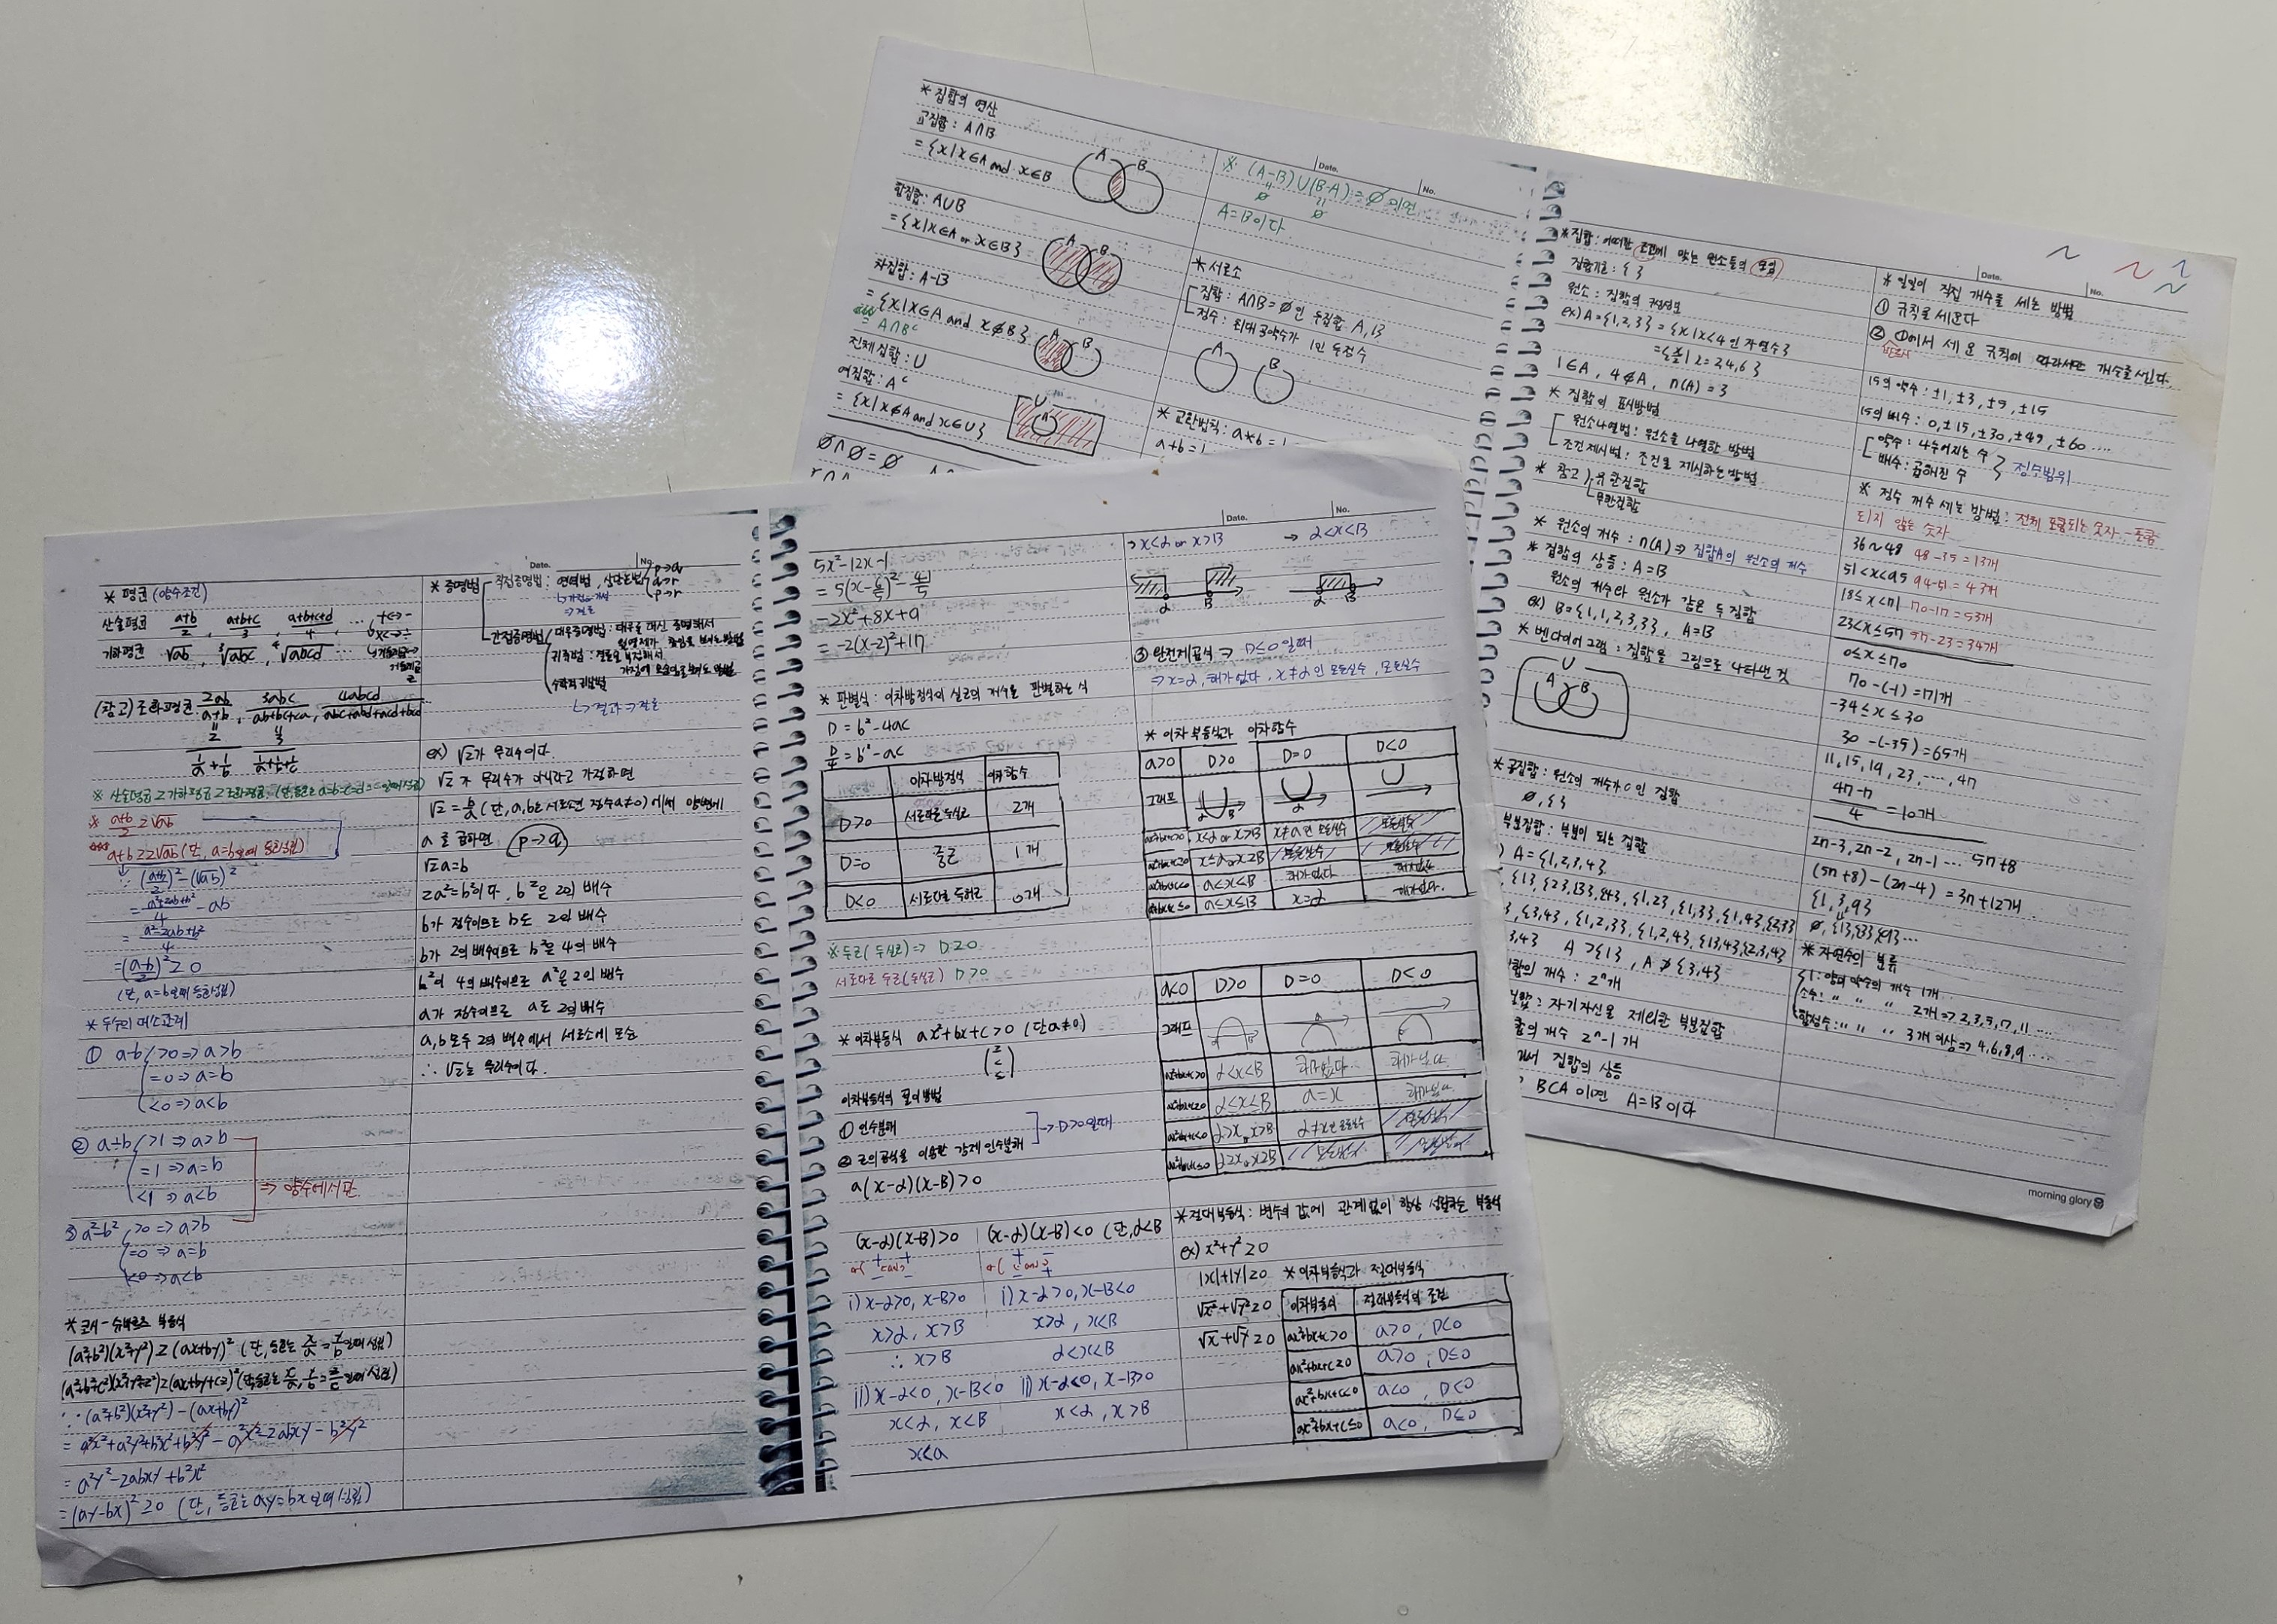 * 집합의 연산
교집합: A∩B
= {x|x∈A and x∈B}
A B
합집합: A∪B
= {x|x∈A or x∈B}
A B
차집합: A-B
= {x|x∈A and x∉B}
= A∩Bᶜ
A B
전체집합: U
여집합: Aᶜ
= {x|x∉A and x∈U}
U
A
∅∩∅=∅
Date. No.
※ (A-B)∪(B-A)=∅ 이면
∅ ∅
A=B이다
* 서로소
집합: A∩B=∅인 두집합 A,B
정수: 최대공약수가 1인 두정수
A B
* 교환법칙: a*b=
a+b=
* 집합: 어떠한 조건에 맞는 원소들의 모임
집합기호: { }
원소: 집합의 구성성분
ex) A={1,2,3}={x|x<4인 자연수}
1∈A, 4∉A, n(A)=3
* 집합의 표시방법
원소나열법: 원소를 나열한 방법
조건제시법: 조건을 제시하는 방법
* 참고) 유한집합
무한집합
* 원소의 개수: n(A) ⇒ 집합A의 원소의 개수
* 집합의 상등: A=B
원소의 개수와 원소가 같은 두 집합
ex) B={1,1,2,3,3}, A=B
* 벤다이어그램: 집합을 그림으로 나타낸 것
U
A B
* 공집합: 원소의 개수가 0인 집합
∅, { }
부분집합: 부분이 되는 집합
) A={1,2,3,4}
3,4} A⊃{1}, A⊅{3,4}
합의 개수: 2ⁿ개
집합: 자기자신을 제외한 부분집합
합의 개수 2ⁿ-1개
에서 집합의 상등
B⊂A 이면 A=B이다
Date. No.
* 일일이 직접 개수를 세는 방법
① 규칙을 세운다
② ①에서 세운 규칙에 따라서만 개수를 센다.
반드시
15의 약수: ±1, ±3, ±5, ±15
15의 배수: 0, ±15, ±30, ±45, ±60 ....
약수: 나누어지는 수
배수: 곱해진 수
정수범위
* 정수 개수 세는 방법: 전체 포함되는 숫자 - 포함
되지 않는 숫자
36~48 48-35=13개
51<x<95 94-51=43개
18≤x<71 70-17=53개
23<x≤57 57-23=34개
0≤x≤70
70-(-1)=71개
-34≤x≤30
30-(-35)=65개
11, 15, 19, 23, ..., 47
(47-7)/4=10개
2n-3, 2n-2, 2n-1 ... 5n+8
(5n+8)-(2n-4)=3n+12개
* 자연수의 분류
1: 양의 약수의 개수 1개
소수: 〃 〃 〃 2개 ⇒ 2,3,5,7,11 ...
합성수: 〃 〃 〃 3개 이상 ⇒ 4,6,8,9 ...
morning glory
Date. No.
* 평균 (양수조건)
산술평균 (a+b)/2, (a+b+c)/3, (a+b+c+d)/4, ...
기하평균 √ab, ³√abc, ⁴√abcd ...
(참고) 조화평균 2ab/(a+b), 3abc/(ab+bc+ca), 4abcd/(abc+abd+acd+bcd)
2/(1/a+1/b) 3/(1/a+1/b+1/c)
※ (a+b)/2≥√ab
a+b≥2√ab (단, a=b일때 등호성립)
∵ ((a+b)/2)²-(√ab)²
=(a²+2ab+b²)/4-ab
=(a²-2ab+b²)/4
=((a-b)/2)²≥0
(단, a=b일때 등호성립)
* 두수의 대소관계
① a-b >0 ⇒ a>b
=0 ⇒ a=b
<0 ⇒ a<b
② a÷b >1 ⇒ a>b
=1 ⇒ a=b
<1 ⇒ a<b
⇒ 양수에서만
③ a²-b² >0 ⇒ a>b
=0 ⇒ a=b
<0 ⇒ a<b
* 코시-슈바르츠 부등식
(a²+b²)(x²+y²)≥(ax+by)² (단, 등호는 x/a=y/b일때 성립)
(a²+b²+c²)(x²+y²+z²)≥(ax+by+cz)² (단, 등호는 x/a=y/b=z/c일때 성립)
∵ (a²+b²)(x²+y²)-(ax+by)²
= a²x²+a²y²+b²x²+b²y²-a²x²-2abxy-b²y²
= a²y²-2abxy+b²x²
= (ay-bx)²≥0 (단, 등호는 ay=bx일때 성립)
* 증명법
직접증명법: 연역법, 삼단논법
p→q
q→r
p→r
간접증명법
대우증명법: 대우를 대신 증명해서
귀류법: 결론을 부정해서
수학적귀납법
ex) √2가 무리수이다.
√2가 무리수가 아니라고 가정하면
√2=b/a (단, a,b는 서로소인 정수 a≠0)에서 양변에
a를 곱하면 (p→q)
√2a=b
2a²=b²이다. b²은 2의 배수
b가 정수이므로 b도 2의 배수
b가 2의 배수이므로 b²은 4의 배수
b²이 4의 배수이므로 a²은 2의 배수
a가 정수이므로 a도 2의 배수
a,b모두 2의 배수에서 서로소에 모순
∴ √2는 무리수이다.
5x²-12x-1
=5(x-6/5)²-41/5
-2x²+8x+9
=-2(x-2)²+17
* 판별식: 이차방정식의 실근의 개수를 판별하는 식
D=b²-4ac
D/4=b'²-ac
이차방정식 이차함수
D>0 서로다른 두실근 2개
D=0 중근 1개
D<0 서로다른 두허근 0개
※ 두근(두실근) ⇒ D≥0
서로다른 두근(두실근) D>0
* 이차부등식 ax²+bx+c>0 (단 a≠0)
이차부등식의 풀이방법
① 인수분해
② 근의공식을 이용한 강제 인수분해
→ D>0일때
a(x-α)(x-β)>0
(x-α)(x-β)>0 (x-α)(x-β)<0 (단, α<β
i) x-α>0, x-β>0 i) x-α>0, x-β<0
x>α, x>β x>α, x<β
∴ x>β α<x<β
ii) x-α<0, x-β<0 ii) x-α<0, x-β>0
x<α, x<β x<α, x>β
x<α
Date. No.
→ x<α or x>β → α<x<β
α β α β
③ 완전제곱식 ⇒ D≤0일때
⇒ x=α, 해가없다, x≠α인 모든실수, 모든실수
* 이차부등식과 이차함수
a>0 D>0 D=0 D<0
그래프
ax²+bx+c>0 x<α or x>β x≠α인 모든실수 모든실수
ax²+bx+c≥0 x≤α or x≥β 모든실수 모든실수
ax²+bx+c<0 α<x<β 해가없다 해가없다
ax²+bx+c≤0 α≤x≤β x=α 해가없다.
a<0 D>0 D=0 D<0
그래프
ax²+bx+c>0 α<x<β 해가없다 해가없다
ax²+bx+c≥0 α≤x≤β α=x 해가없다
ax²+bx+c<0 α>x or x>β α≠x인 모든실수 모든실수
ax²+bx+c≤0 α≥x or x≥β 모든실수 모든실수
* 절대부등식: 변수의 값에 관계없이 항상 성립하는 부등식
ex) x²+y²≥0
|x|+|y|≥0
√x²+√y²≥0
√x+√y≥0
* 이차부등식과 절대부등식
이차부등식 절대부등식의 조건
ax²+bx+c>0 a>0, D<0
ax²+bx+c≥0 a>0, D≤0
ax²+bx+c<0 a<0, D<0
ax²+bx+c≤0 a<0, D≤0